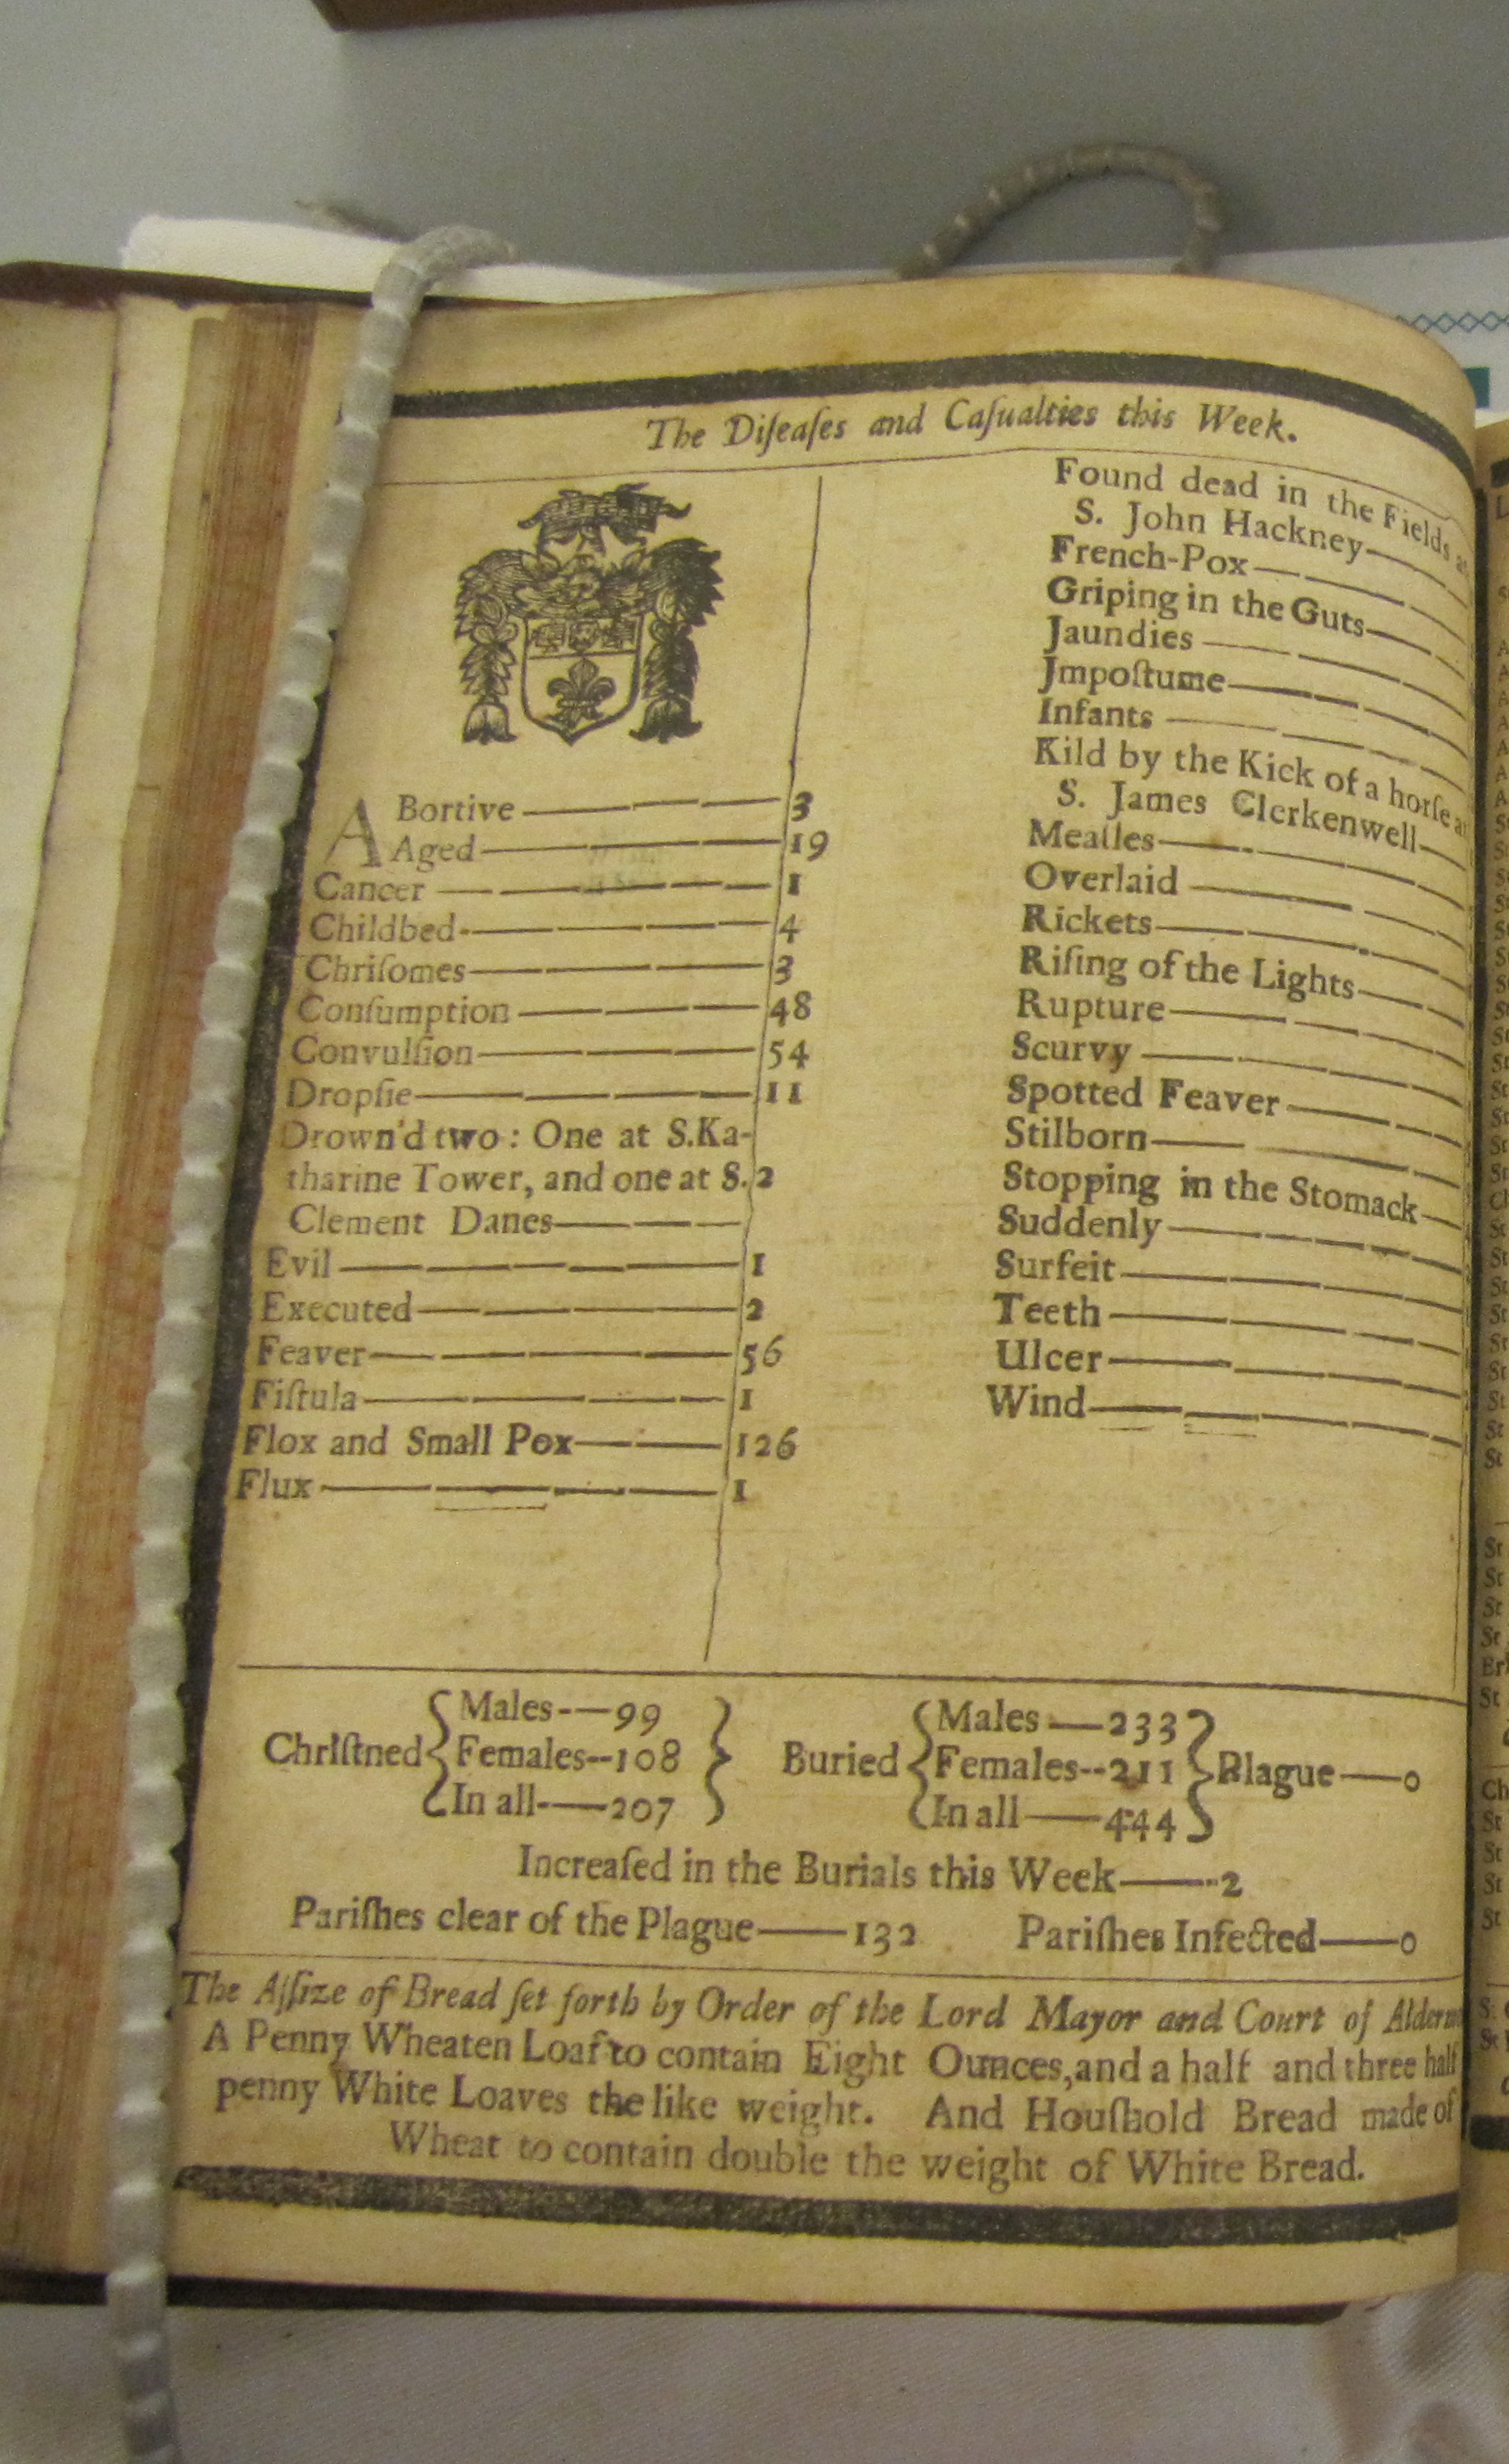 The Diſeaſes and Caſualties this Week.
ABortive 3
Aged 19
Cancer 1
Childbed 4
Chriſomes 3
Conſumption 48
Convulſion 54
Dropſie 11
Drown'd two: One at S.Ka-
tharine Tower, and one at S. 2
Clement Danes
Evil 1
Executed 2
Feaver 56
Fiſtula 1
Flox and Small Pox 126
Flux 1
Found dead in the Fields
S. John Hackney
French-Pox
Griping in the Guts
Jaundies
Jmpoſtume
Infants
Kild by the Kick of a horſe
S. James Clerkenwell
Meaſles
Overlaid
Rickets
Riſing of the Lights
Rupture
Scurvy
Spotted Feaver
Stilborn
Stopping in the Stomack
Suddenly
Surfeit
Teeth
Ulcer
Wind
Chriſtned { Males--—99
Females--108
In all-—207 }
Buried { Males—233
Females--211
In all—444 } Plague—0
Increaſed in the Burials this Week—2
Pariſhes clear of the Plague—132 Pariſhes Infected—0
The Aſſize of Bread ſet forth by Order of the Lord Mayor and Court of
A Penny Wheaten Loaf to contain Eight Ounces, and a half and three half
penny White Loaves the like weight. And Houſhold Bread made of
Wheat to contain double the weight of White Bread.